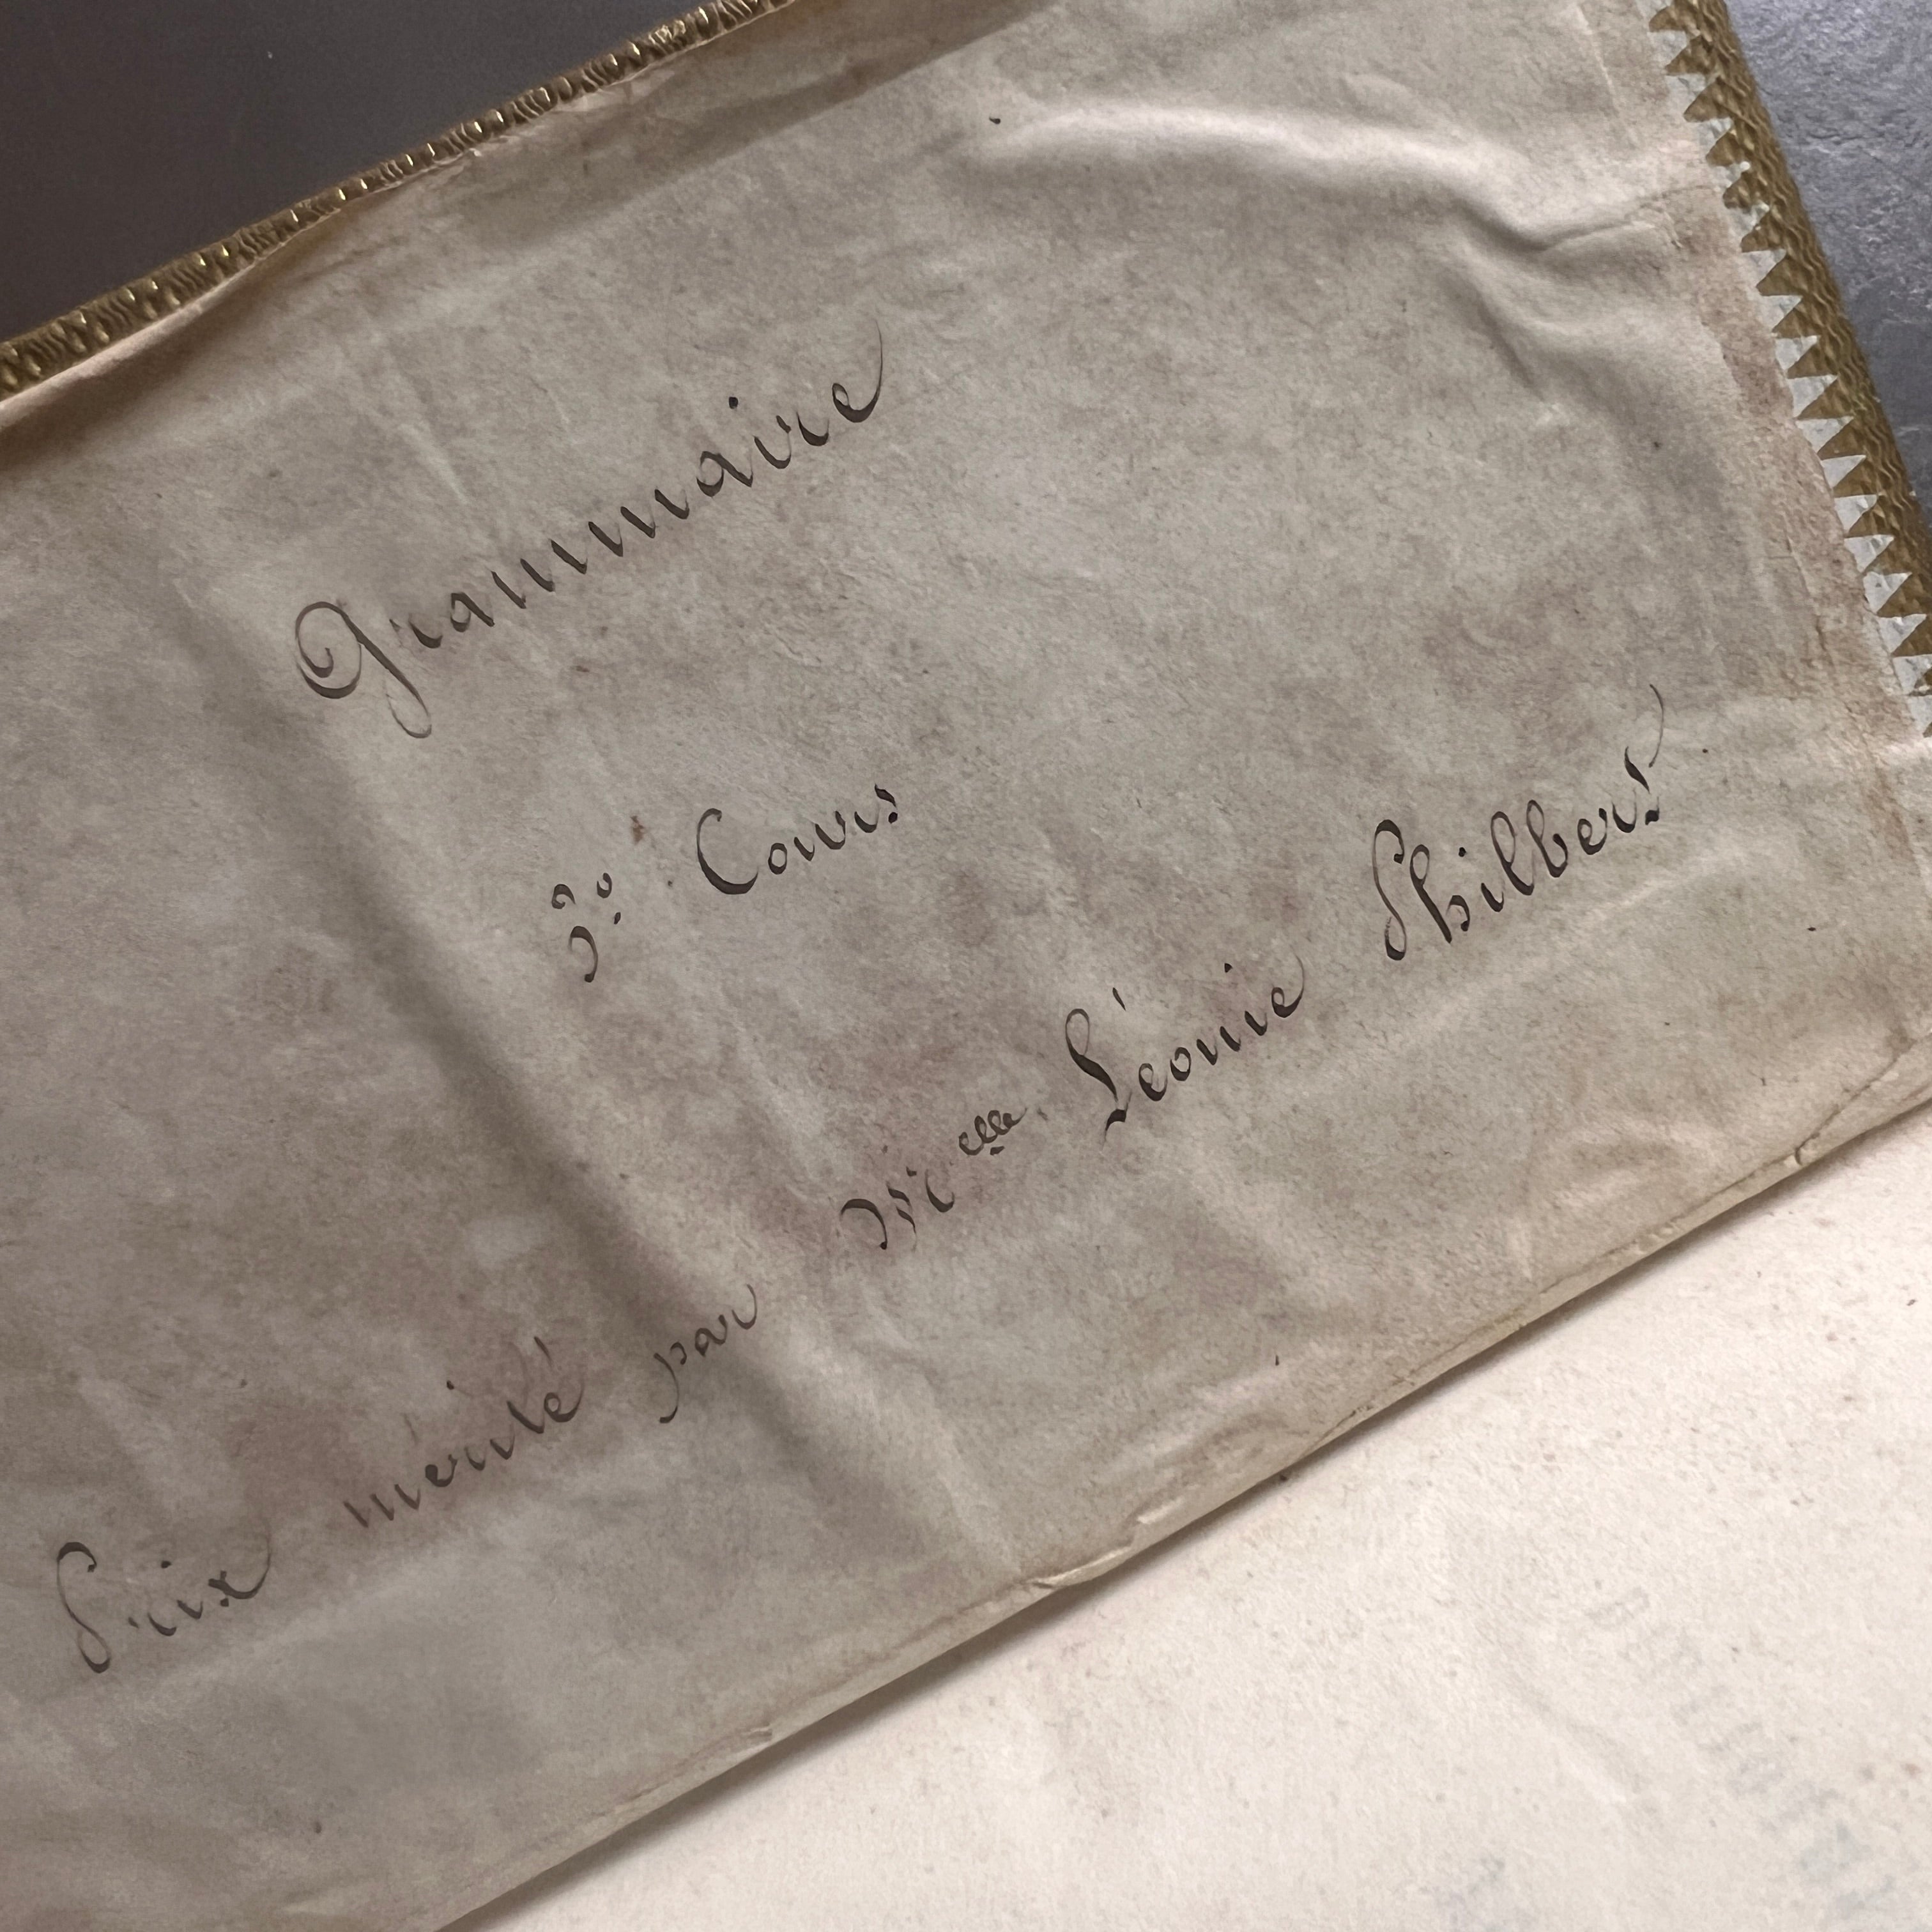 Grammaire
3e. Cours
Prix mérité par Melle. Léonie Philbert